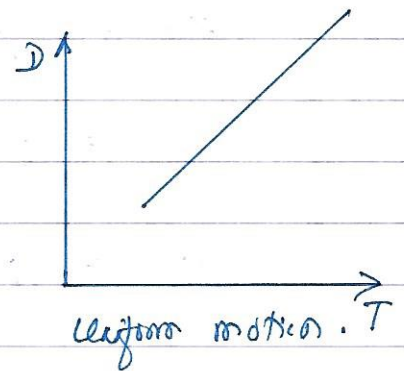 D
Uniform motion. T